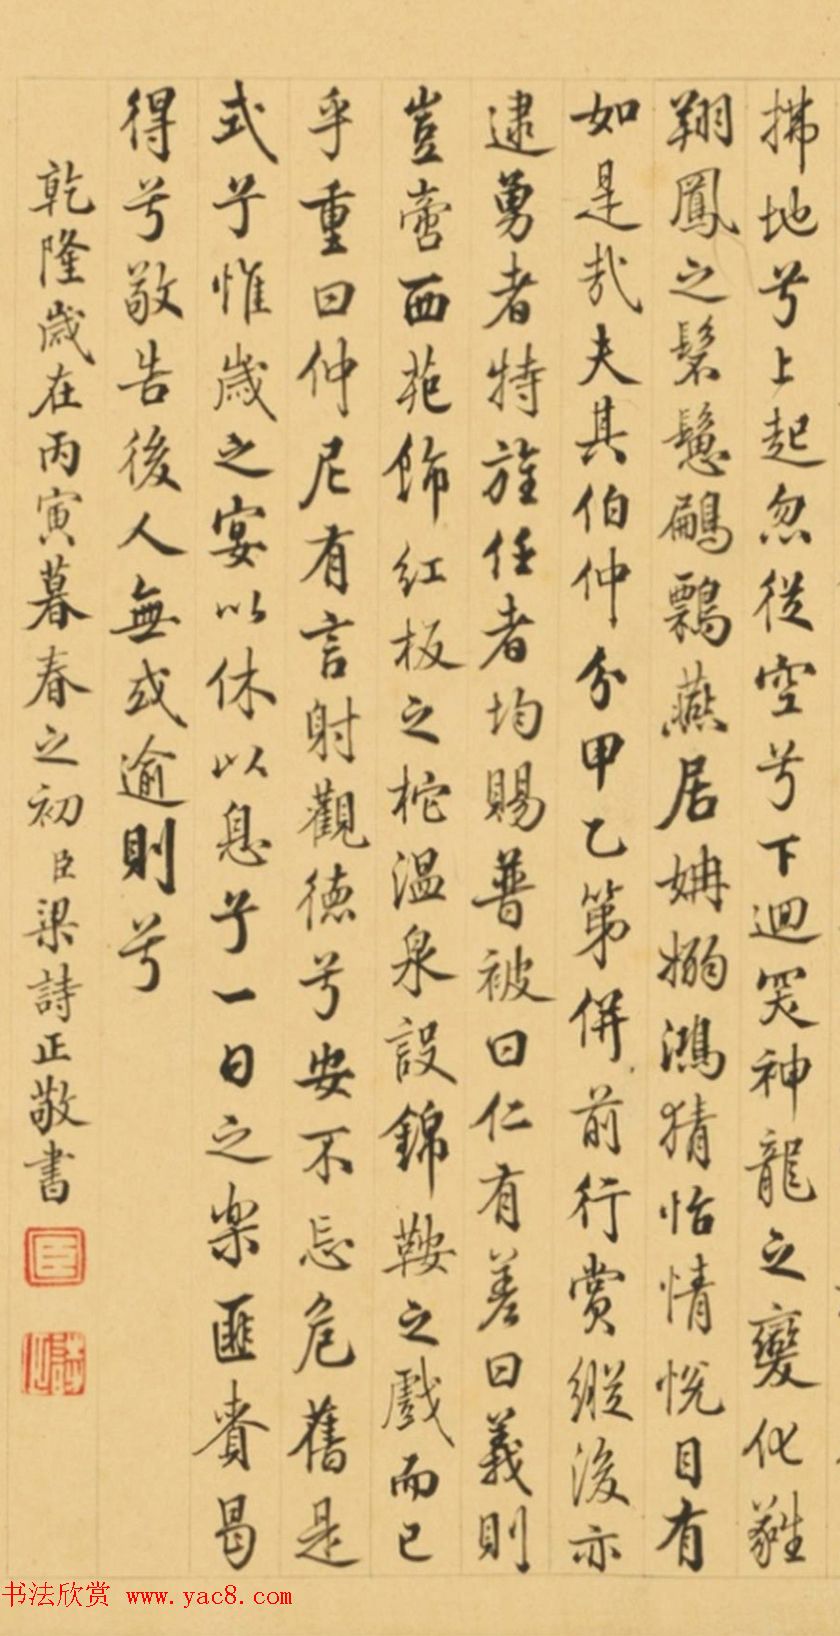 拂地兮上起忽從空兮下迴哭神龍之變化雖
翔鳳之髣髴鶣鷅燕居姌搦鴻猜怡情悅目有
如是哉夫其伯仲分甲乙第併前行賞縱後亦
逮勇者特旌任者均賜普被曰仁有差曰義則
豈啻西苑飾紅板之柁溫泉設錦鞍之戲而已
乎重曰仲尼有言射觀德兮安不忘危舊是
式兮惟歲之宴以休以息兮一日之樂匪貴曷
得兮敬告後人無或逾則兮
乾隆歲在丙寅暮春之初臣梁詩正敬書
臣
书法欣赏 www.yac8.com